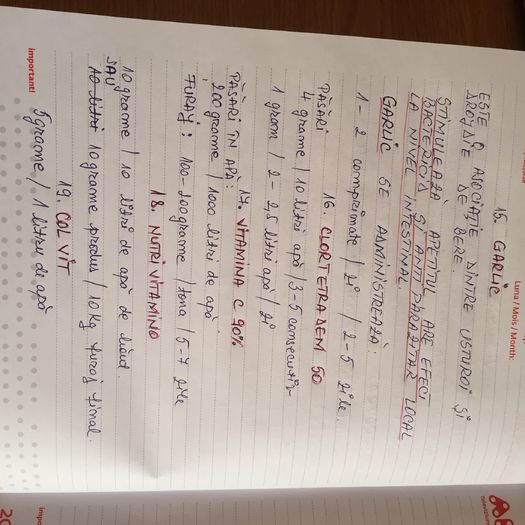 Luna / Mois / Month:
15. GARLIC
ESTE O ASOCIAȚIE DINTRE USTUROI ȘI
DROJDIE DE BERE.
STIMULEAZĂ APETITUL ARE EFECT
BACTERICID ȘI ANTIPARAZITAR LOCAL
LA NIVEL INTESTINAL.
GARLIC SE ADMINISTREAZĂ:
1 - 2 comprimate / zi / 2-5 zile.
16. CLORTETRADEM 50
PĂSĂRI
4 grame / 10 litri apă / 3-5 consecutiv
1 gram / 2 - 2,5 litri apă / zi
17. VITAMINA C 90%
PĂSĂRI ÎN APĂ:
200 grame / 1000 litri de apă
FURAJ: 100-200 grame / tona / 5-7 zile
18. NUTRIVITAMINO
10 grame / 10 litri de apă de băut.
SAU
10 litri 10 grame produs / 10 kg furaj final.
19. COLVIT
5 grame / 1 litru de apă
important!